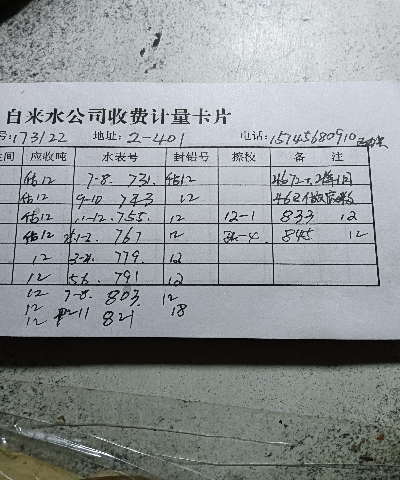 自来水公司收费计量卡片
号:173122 地址:2-401 电话:15745680910
间 应收吨 水表号 封铅号 擦校 备 注
估12 7-8. 731. 估12
估12 9-10 743 12
估12 11-12. 755. 12 12-1 833 12
估12 1-2. 767 12 3-4 845 12
12 3-4. 779. 12
12 5-6. 791 12
12 7-8. 803. 12
12
12 11 821 18